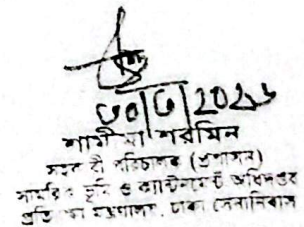 ৩০|৩|2026
শামীমা শরমিন
সহকারী পরিচালক (প্রশাসন)
সামরিক ভূমি ও ক্যান্টনমেন্ট অধিদপ্তর
প্রতিরক্ষা মন্ত্রণালয়, ঢাকা সেনানিবাস